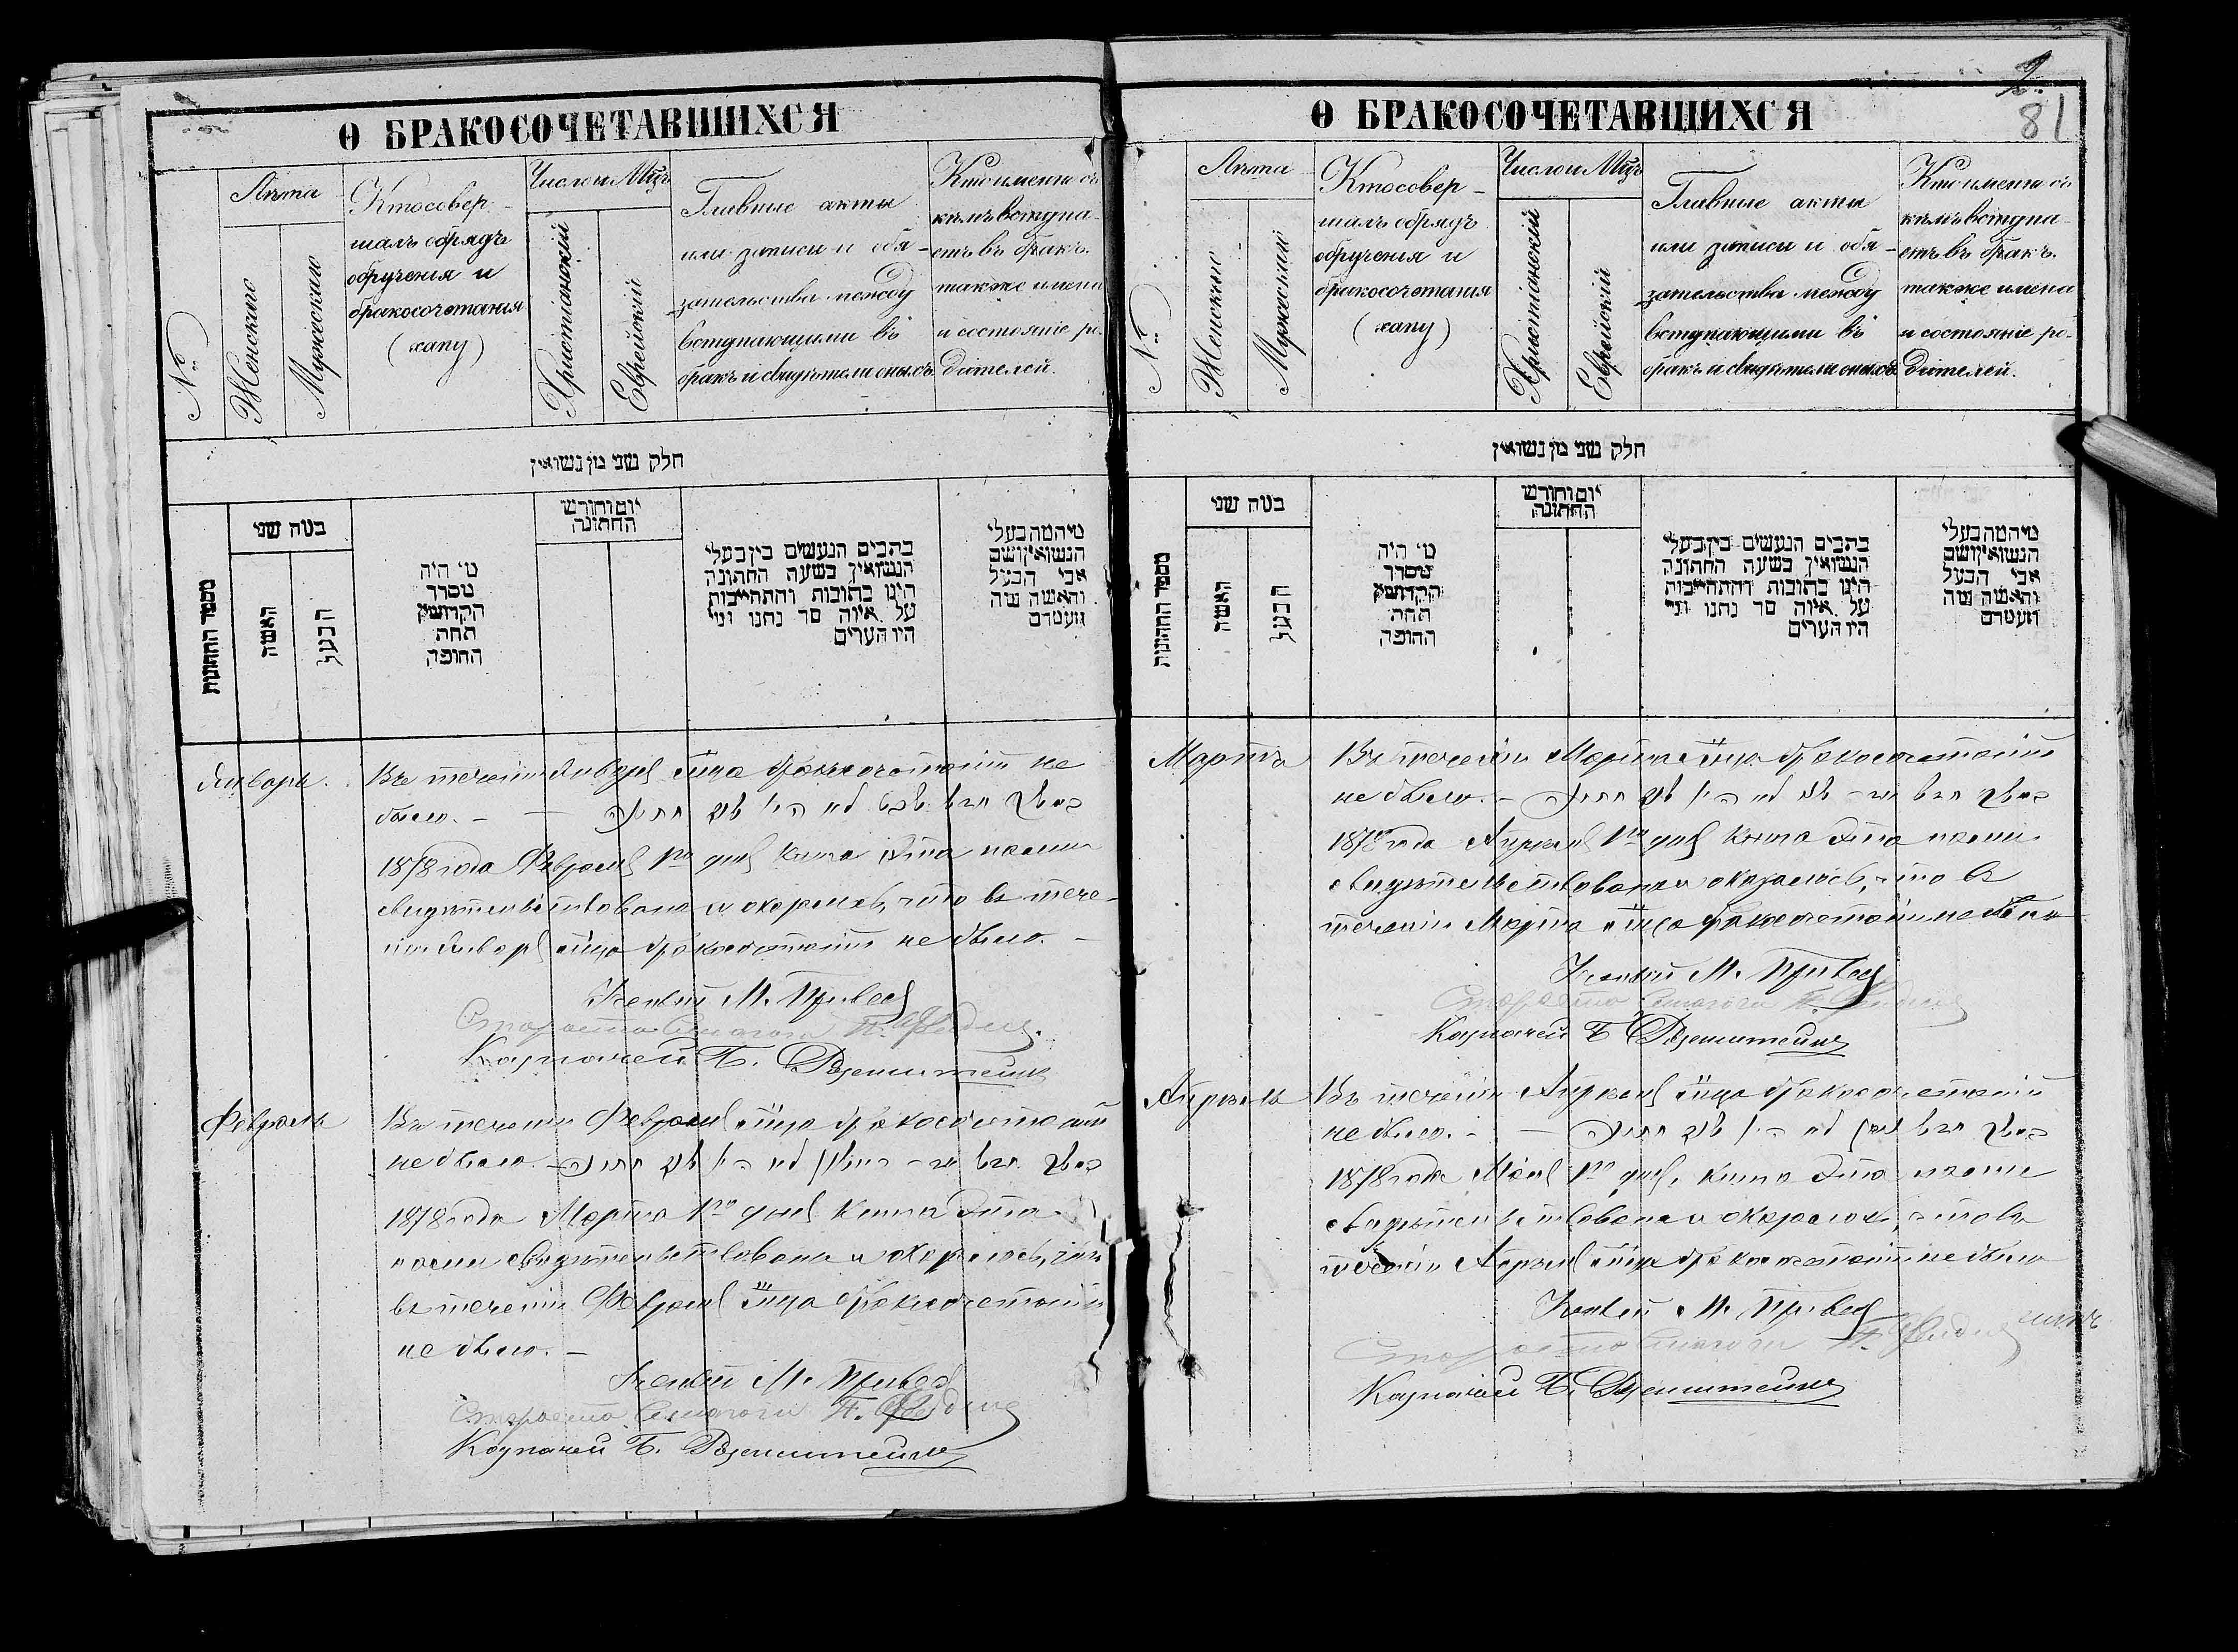 О БРАКОСОЧЕТАВШИХСЯ
№
Лѣта
Женскаго
Мужескаго
Кто совер-
шалъ обрядъ
обрученія и
бракосочетанія
(хапу)
Число и Мѣц.
Христіанскій
Еврейскій
Главные акты
или записи и обя-
зательства между
вступающими въ
бракъ и свидѣтели оныхъ
Кто именно съ
кѣмъ вступа-
етъ въ бракъ.
также имена
и состояніе ро-
дителей.
חלק שני מן נשואין
מספר החתונות
במה שני
האשה
הבעל
מי היה
מסדר
הקדושין
תחת
החופה
יום וחודש
החתונה
כתבים הנעשים בין בעלי
הנשואין בשעה החתונה
היינו כתובות והתחייבות
על איזה סך נתנו ומי
היו העדים
מי המה בעלי
הנשואין ושם
אבי הבעל
והאשה מה
מעמדם
Январь. Въ теченіи Января м-ца бракосочетаній не
было. —
1878 года Февраля 1го дня Книга эта нами
свидѣтельствована и оказалось, что въ тече-
ніи Января м-ца бракосочетаній не было. —
М. Привес
Староста Синагоги
Казначей Б. Розенштейнъ
Февраль Въ теченіи Февраля м-ца бракосочетаній
не было. —
1878 года Марта 1го дня Книга эта
нами свидѣтельствована и оказалось, что
въ теченіи Февраля м-ца бракосочетаній
не было. —
М. Привес
Староста Синагоги
Казначей Б. Розенштейнъ
2.
81
О БРАКОСОЧЕТАВШИХСЯ
№
Лѣта
Женскаго
Мужескаго
Кто совер-
шалъ обрядъ
обрученія и
бракосочетанія
(хапу)
Число и Мѣц.
Христіанскій
Еврейскій
Главные акты
или записи и обя-
зательства между
вступающими въ
бракъ и свидѣтели оныхъ
Кто именно съ
кѣмъ вступа-
етъ въ бракъ.
также имена
и состояніе ро-
дителей.
חלק שני מן נשואין
מספר החתונות
במה שני
האשה
הבעל
מי היה
מסדר
הקדושין
תחת
החופה
יום וחודש
החתונה
כתבים הנעשים בין בעלי
הנשואין בשעה החתונה
היינו כתובות והתחייבות
על איזה סך נתנו ומי
היו העדים
מי המה בעלי
הנשואין ושם
אבי הבעל
והאשה מה
מעמדם
Мартъ Въ теченіи Марта м-ца бракосочетаній
не было. —
1878 года Апрѣля 1го дня Книга эта нами
свидѣтельствована и оказалось, что въ
теченіи Марта м-ца бракосочетаній не было
М. Привес
Староста Синагоги
Казначей Б. Розенштейнъ
Апрѣль Въ теченіи Апрѣля м-ца бракосочетаній
не было. —
1878 года Мая 1го дня, Книга эта нами
свидѣтельствована и оказалось, что въ
теченіи Апрѣля м-ца бракосочетаній не было
М. Привес
Староста Синагоги
Казначей Б. Розенштейнъ